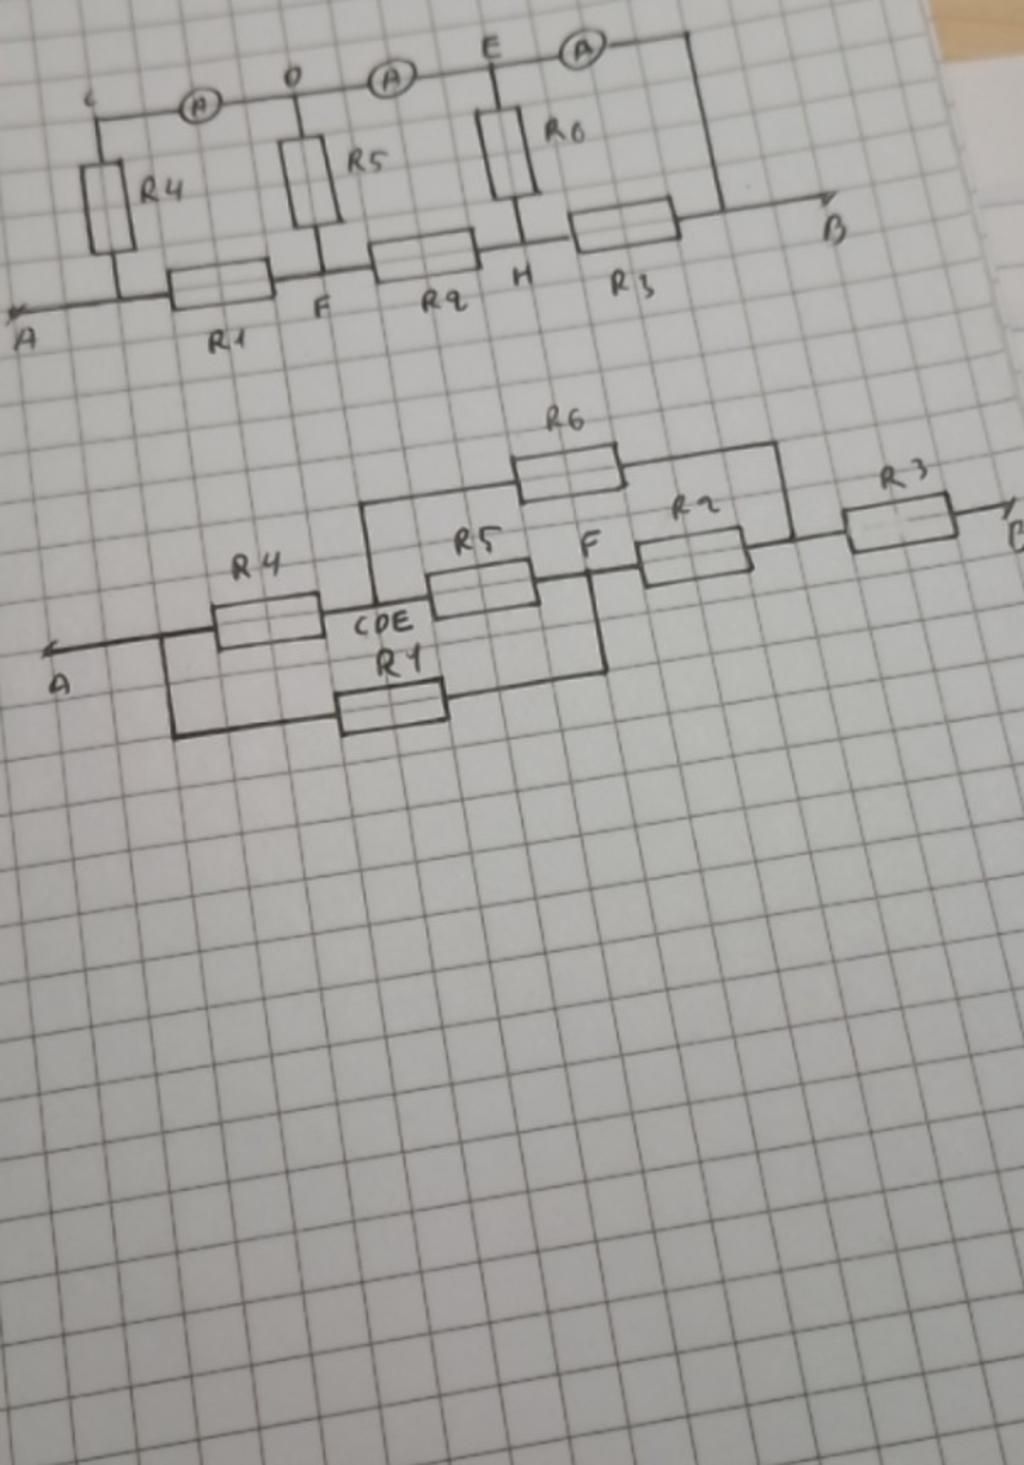 E
D A A A
C
R4 R5 R6
A R1 F R2 H R3 B
R6
R3
R5 F R2
R4
CDE
A R1